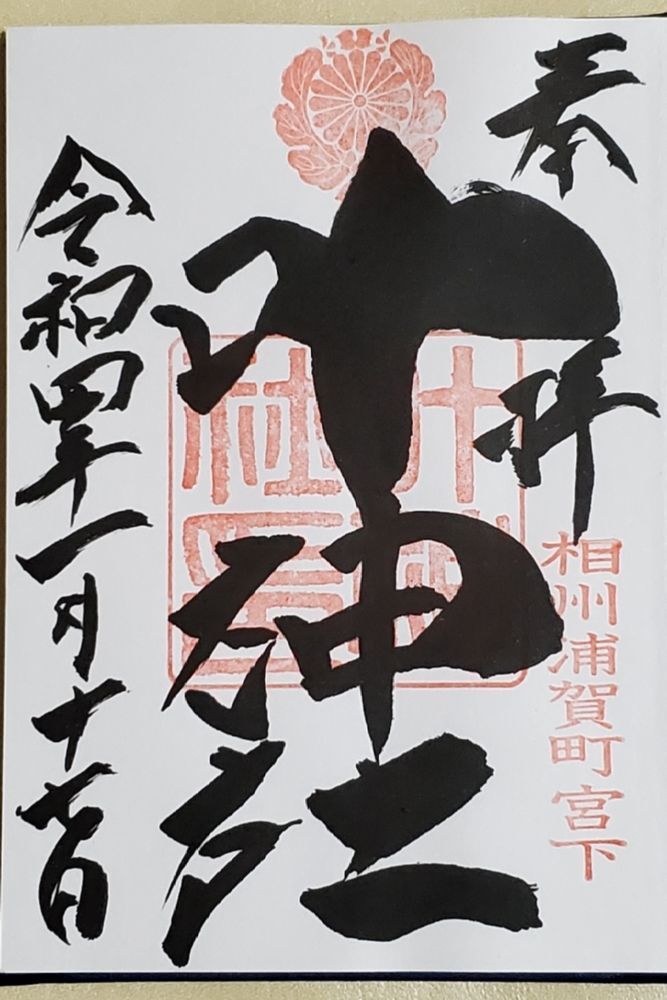 奉拝
相州浦賀町宮下
叶神社
令和四年一月十日